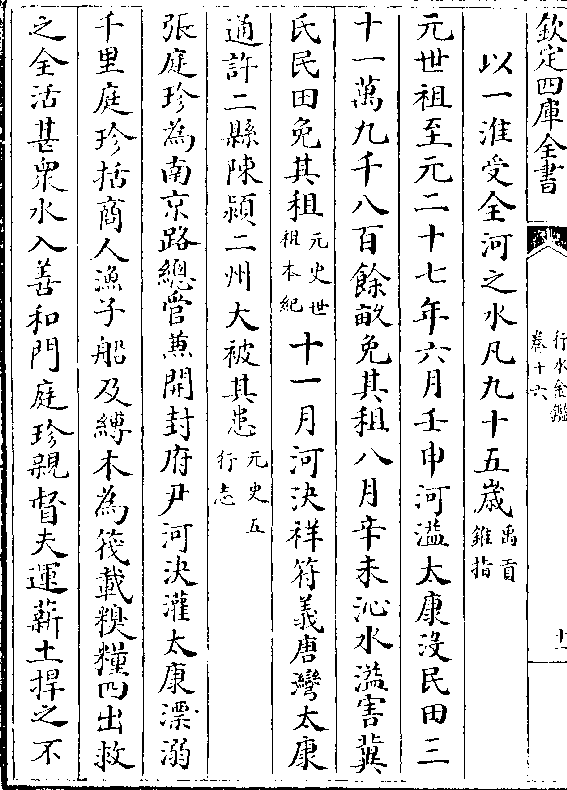 欽定四庫全書
行水金鑑
卷十六
十
以一淮受全河之水凡九十五歲禹貢錐指
元世祖至元二十七年六月壬申河溢太康沒民田三
十一萬九千八百餘畝免其租八月辛未沁水溢害冀
氏民田免其租元史世祖本紀十一月河決祥符義唐灣太康
通許二縣陳潁二州大被其患元史五行志
張庭珍為南京路總管兼開封府尹河決灌太康漂溺
千里庭珍括商人漁子船及縛木為筏載糗糧四出救
之全活甚衆水入善和門庭珍親督夫運薪土捍之不